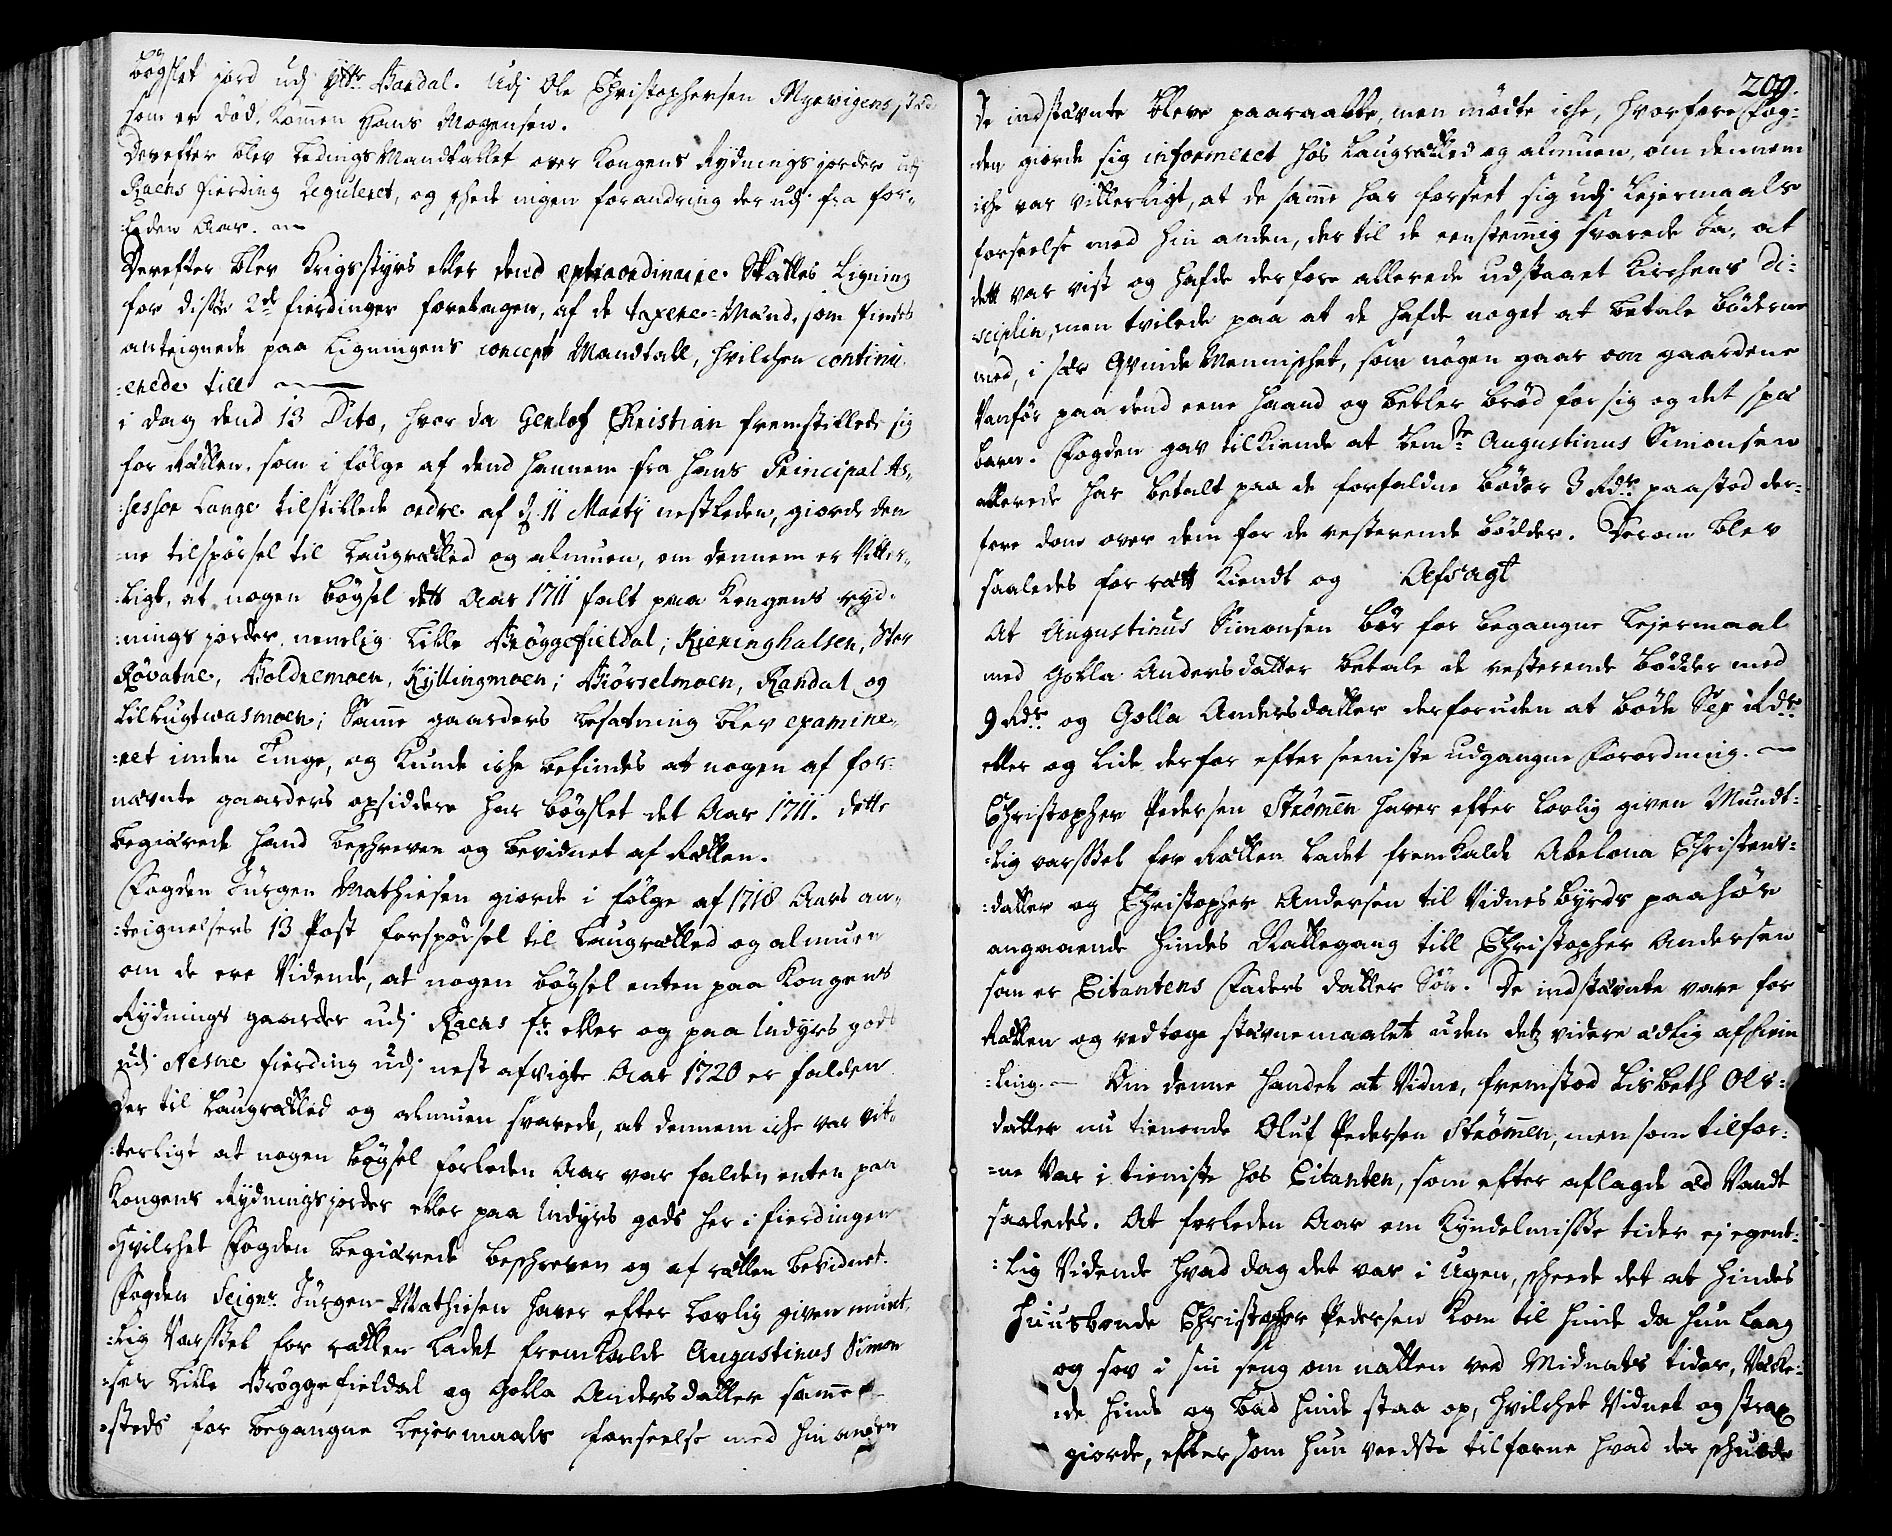 bøgslet jord udj ÿttr Bardal. Udj Ole Christophersen Myrwigens stæd
som er død, kommen Hans Mogensen.
Derefter blev LedingsMandtallet over Kongens Rydnings jorder udj
Raens fierding Reguleret, og skede ingen forandring der udj fra for-
:leden Aar.
Derefter blev Krigsstyrs eller dend extraordinaire Skattes Ligning
for disse 2de fierdinger foretagen, af de taxere-Mænd, som findes
anteignede paa Ligningens concept Mandtall, hvilchen continu-
:erede till
i dag dend 13 Dito, hvor da Gerlof Christian fremstillede sig
for Rætten, som i følge af dend hannem fra hans Principal As-
:sessor Lange tilstillede ordre af d. 11 Martÿ nestleden, giorde den
:ne tilspørsel til Laugrætted og almuen, om dennem er Vitter-
:ligt, at nogen bøgsel dett Aar 1711 falt paa Kongens ryd-
:nings jorder, nemlig Lille Brøggefieldal, Kieringhalsen, Stor
Røvatne, Boldremoen, Kyllingmoen, Børselmoen, Randal og
Lillugtwasmoen; Samme gaarders besætning blev examine-
:ret inden Tinge, og kunde iche befindes at nogen af for-
nævnte gaarders opsiddere har bøgslet det Aar 1711. dette
begiærede hand beschreven og bevidnet af Rætten.
Fogden Jürgen Mathiesen giorde i følge af 1718 Aars an-
:teignelsers 13 Post forspørsel til Laugrætted og almuen
om de ere Vidende, at nogen bøgsel enten paa Kongens
Rydnings gaarder udj Raens fr. eller og paa Indyrs gods
udj Nesne fierding udj nest afvigte Aar 1720 er falden
der til Laugrætted og almuen svarede, at dennem iche var vit-
:terligt at nogen bøgsel forleden Aar var falden enten paa
Kongens Rydnings jorder eller paa Indyrs gods her i fierdingen
Hvilchet Fogden begiærede beschreven og af rætten bevidnet.
Fogden Seignr. Jürgen Mathiesen haver efter Lovlig given munt-
:lig Varssel for rætten ladet fremkalde Augustinus Simon
:sen Lille Brøggefieldal og Golla Andersdatter samme
:steds for begangne Lejermaals forseelse med hin anden
209.
De indstævnte bleve paaraabte, men mødte iche, hvorfore Fog-
:den giorde sig informeret hos Laugrætted og almuen, om dennem
iche var vitterligt, at de samme har forseet sig udj Lejermaals
forseelse med hin anden, der til de eenstemmig svarede Ja, at
dett var vist og hafde derfore allerede udstaaet Kirchens di-
:sciplin, men tvilede paa at de hafde noget at betale bøderne
med, i sær QvindeMennischet, som nøgen gaar om gaardene
Vanfør paa dend eene haand og betler brød for sig og det spæ
barn. Fogden gav tilkiende at bemte Augustinus Simonsen
allerede har betalt paa de forfaldne bøder 3 Rdr. paastod der-
fore dom over dem for de resterende bødder. Derom blev
saaledes for rætt kiendt og Afsagt
At Augustinus Simonsen bør for begangne Lejermaal
med Golla Andersdatter betale de resterende bødder med
9 Rdr. og Golla Andersdatter desforuden at bøde Sex Rdr.
eller og lide derfor efter seeniste udgangne Forordning.
Christopher Pedersen Strømen haver efter Lovlig given Mundt-
:lig varssel for Rætten ladet fremkalde Abelona Christens-
:datter og Christopher Andersen til Vidnesbyrds paahør
angaaende hindes Nattegang till Christopher Andersen
som er Citantens Faders datter Søn. De indstævnte vare for
Rætten og vedtoge stævnemaalet uden detz videre ædlig afhiem
:ling. Om denne handel at Vidne, fremstod Lisbeth Ols-
datter nu tienende Oluf Pedersen Strømen, men som tilfor-
:ne var i tieniste hos Citanten, som efter aflagde æd Vandt
saaledes. At forleden Aar om Kyndelmisse tider ej egent-
:lig Vidende hvad dag det var i Ugen, scheede det at hindes
huusbonde Christopher Pedersen kom til hinde da hun laag
og sov i sin seng om natten ved Midnats tider, Væke-
:de hinde og bad hinde staa op, hvilchet Vidnet og strax
giorde, eftersom hun veedste tilforne hvad der schulde